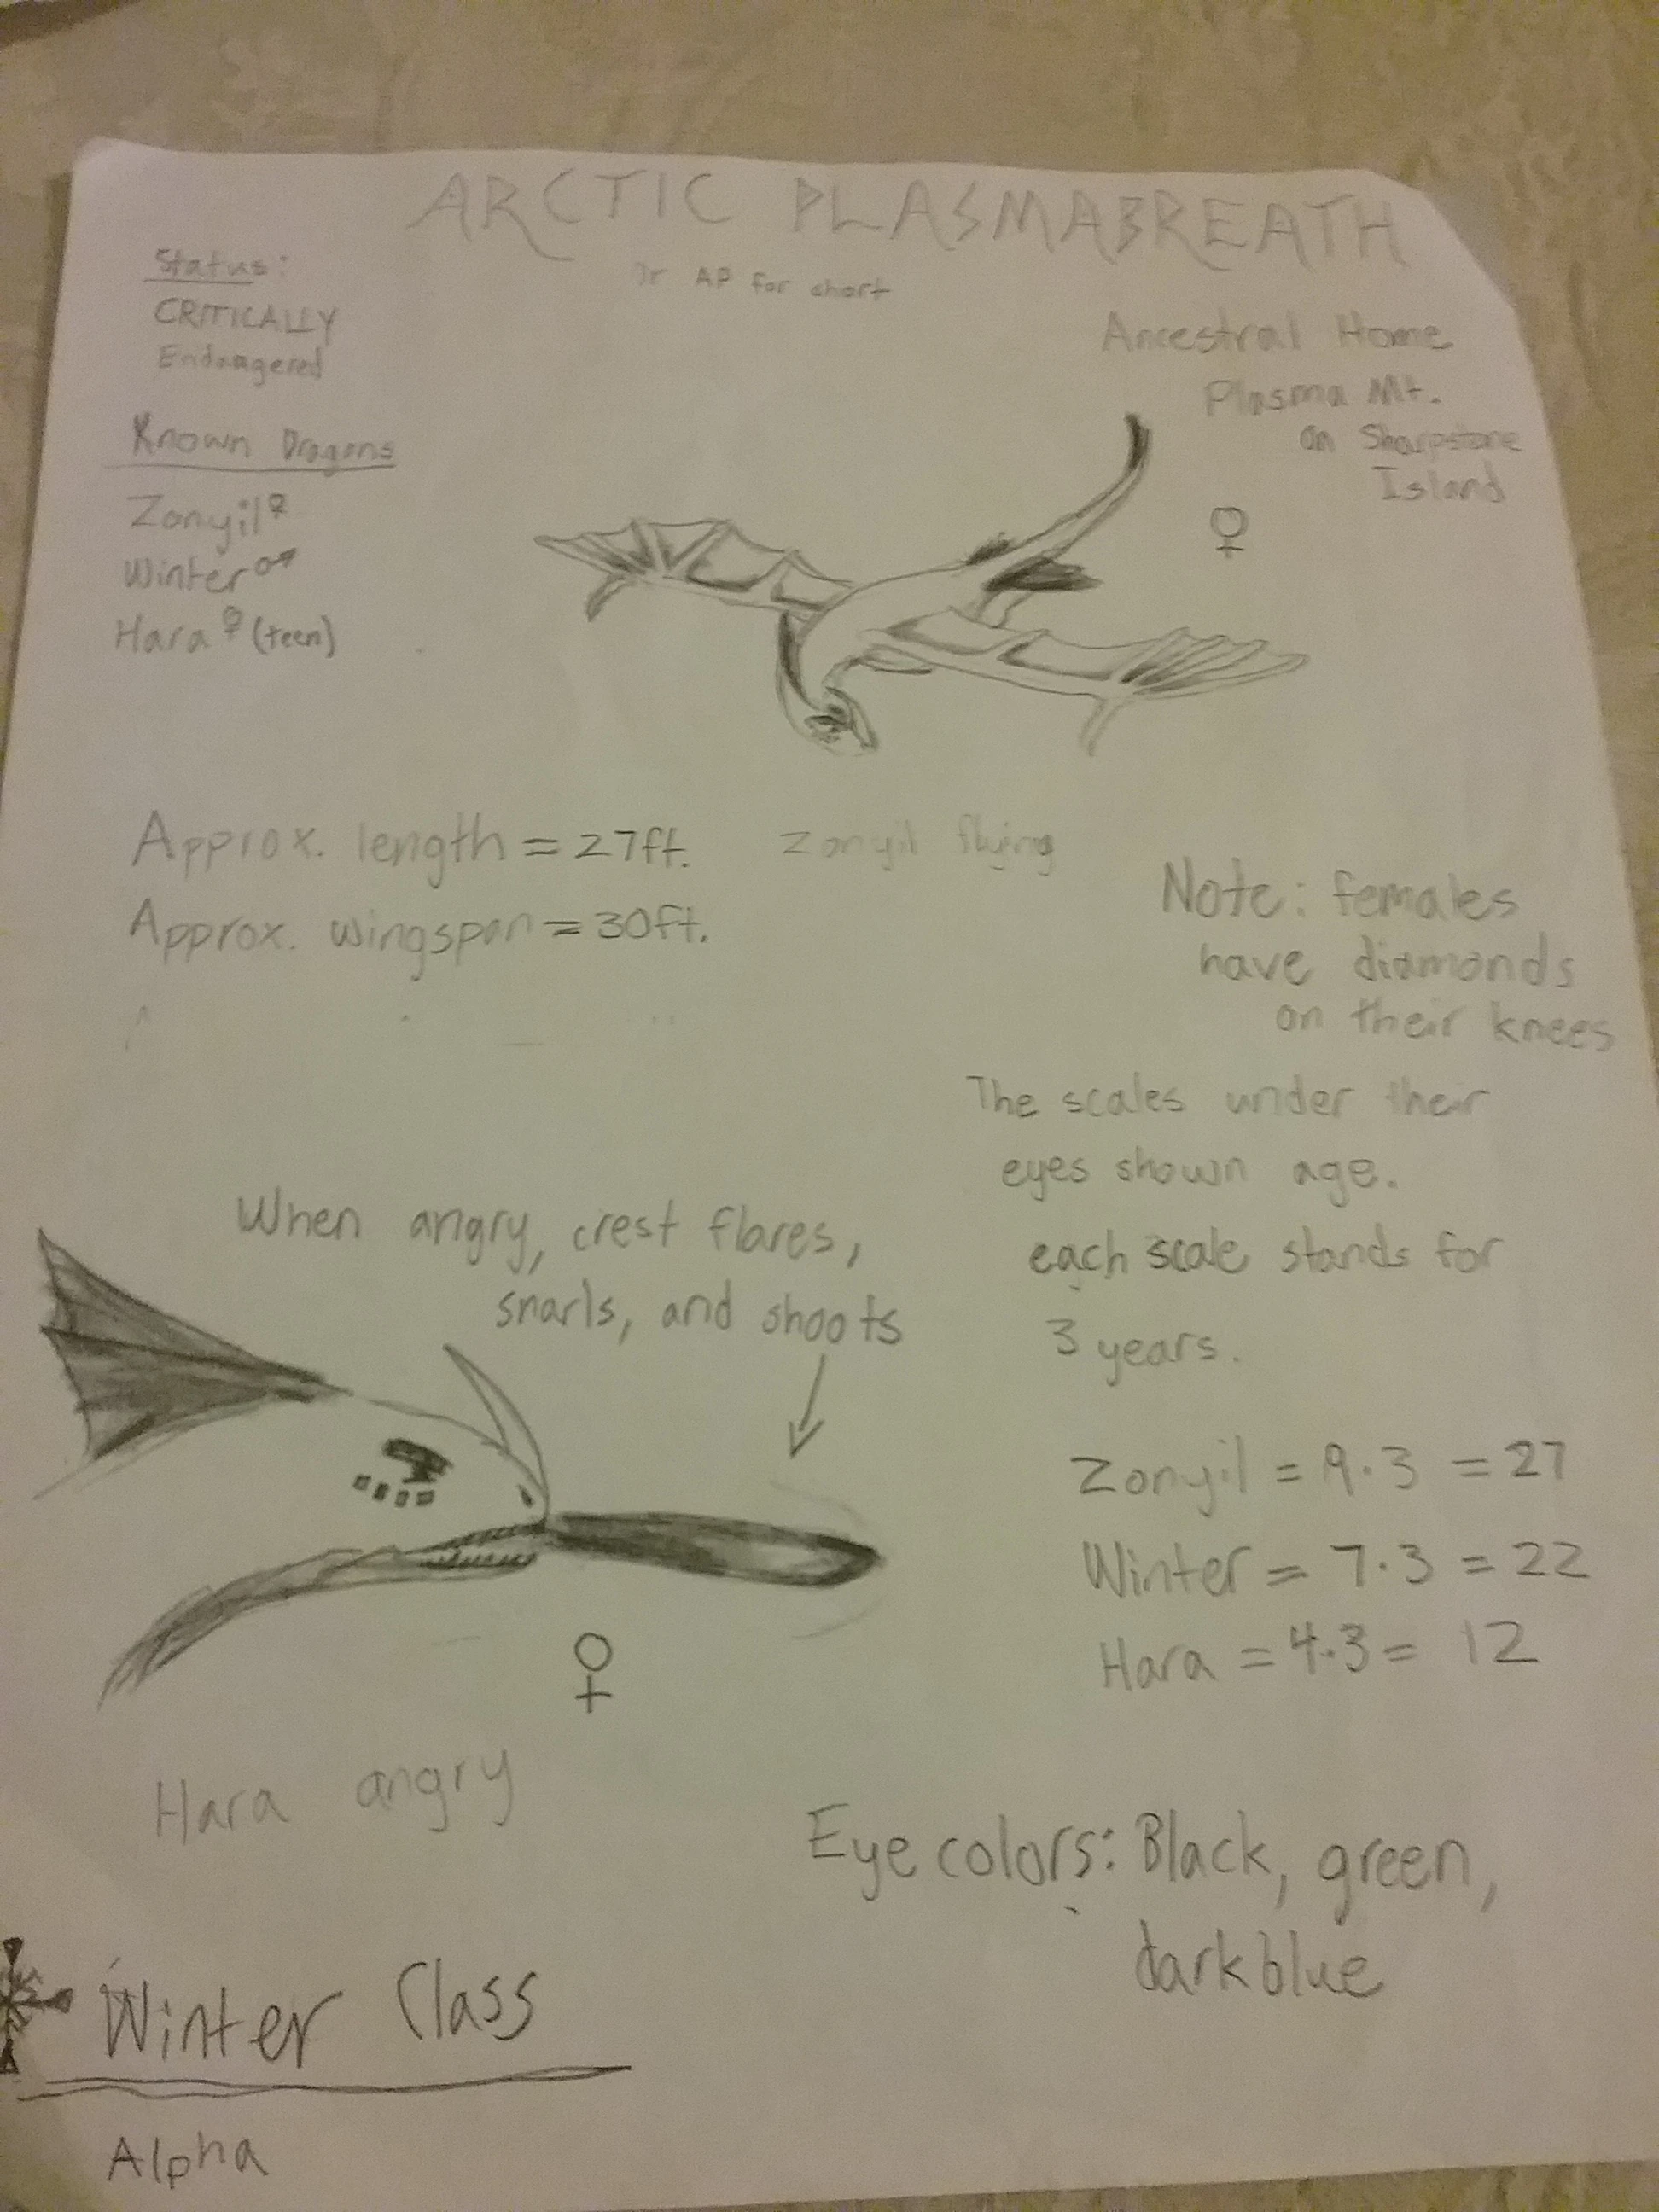 ARCTIC PLASMABREATH
Or AP for short
Status:
CRITICALLY
Endangered
Known Dragons
Zonyil ♀
Winter ♂
Hara ♀ (teen)
Ancestral Home
Plasma Mt.
on Sharpstone
Island
♀
Approx. length = 27ft.
Approx. wingspan = 30ft.
Zonyil flying
Note: females
have diamonds
on their knees
The scales under their
eyes shown age.
each scale stands for
3 years.
Zonyil = 9·3 = 27
Winter = 7·3 = 22
Hara = 4·3 = 12
When angry, crest flares,
snarls, and shoots
♀
Hara angry
Eye colors: Black, green,
dark blue
Winter Class
Alpha